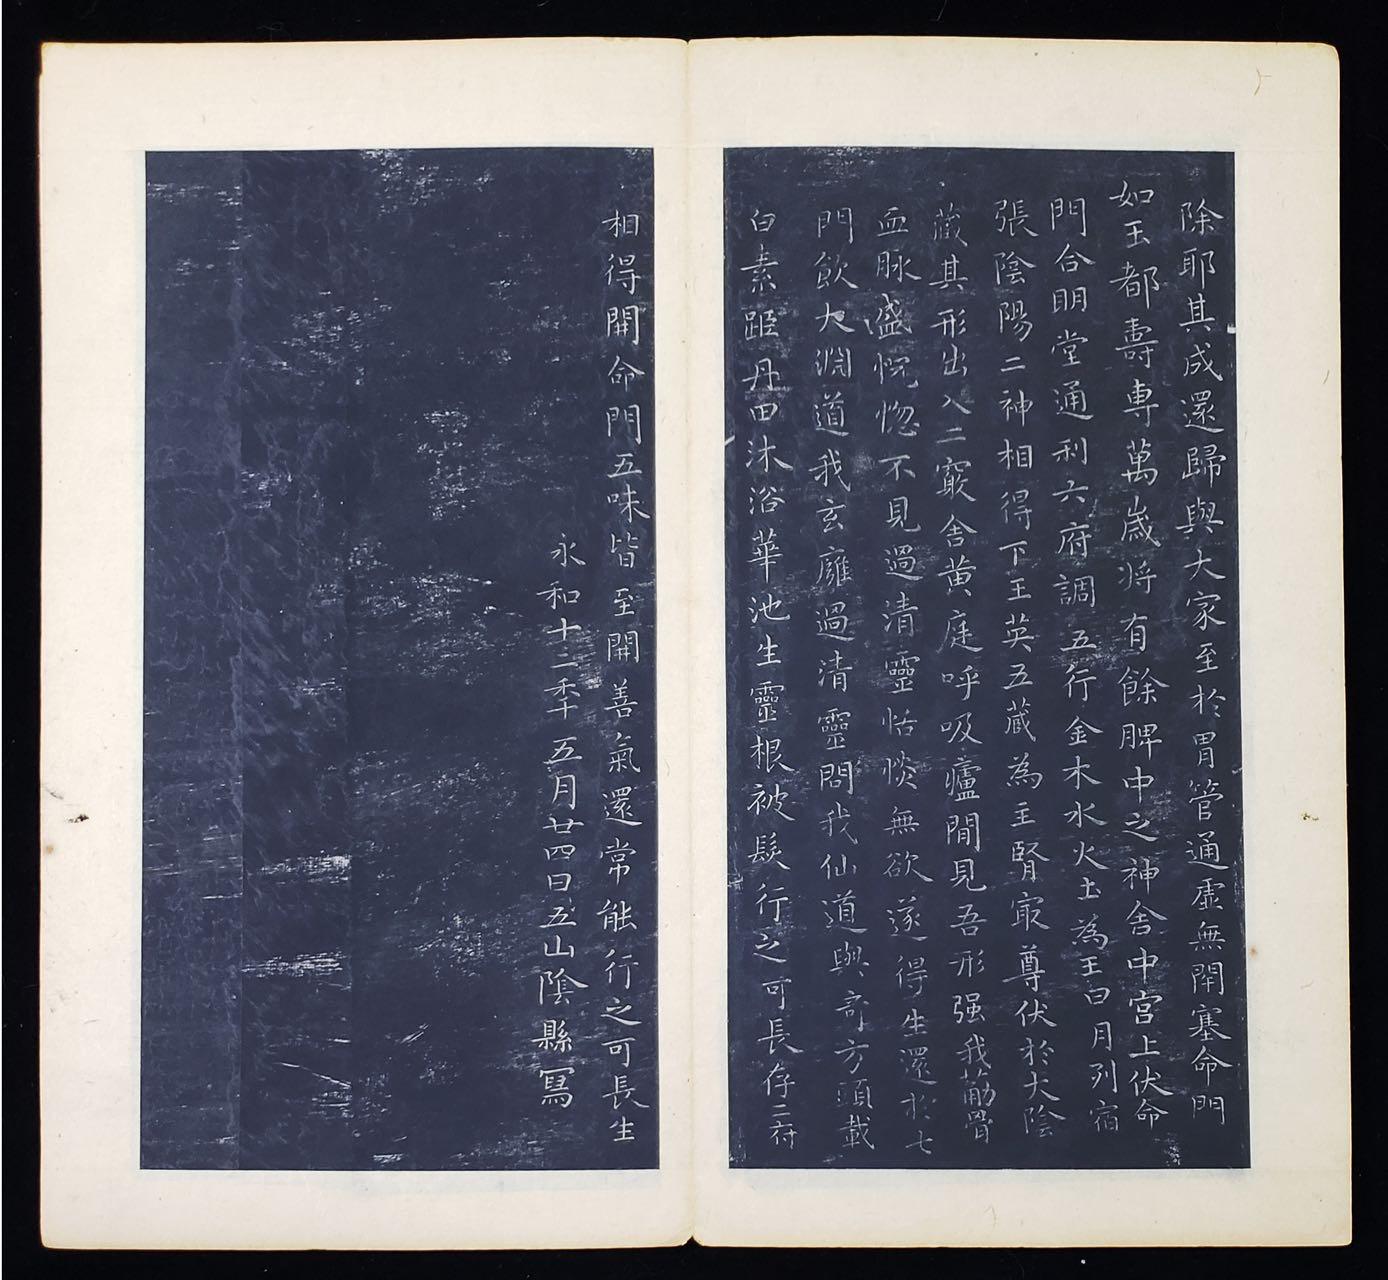 除耶其成還歸與大家至於胃管通虛無閉塞命門
如玉都壽專萬歲將有餘脾中之神舍中宮上伏命
門合明堂通利六府調五行金木水火土為王日月列宿
張陰陽二神相得下王英五蔵為主腎最尊伏於大陰
蔵其形出入二竅舍黄庭呼吸廬間見吾形强我筋骨
血脉盛恍惚不見過清靈恬惔無欲遂得生還於七
門飲大淵道我玄廱過清靈問我仙道與奇方頭載
白素距丹田沐浴華池生靈根被髮行之可長存二府
相得開命門五味皆至開善氣還常能行之可長生
永和十二年五月廿四日五山陰縣寫